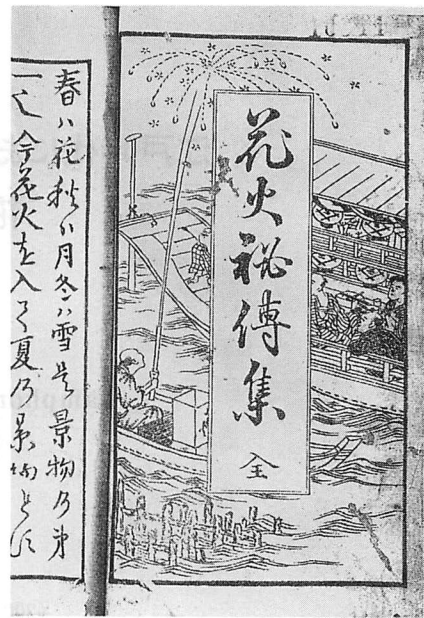 花火秘傳集
全
春ハ花秋ハ月冬ハ雪是景物の第
一く今花火を入て夏の景物とす